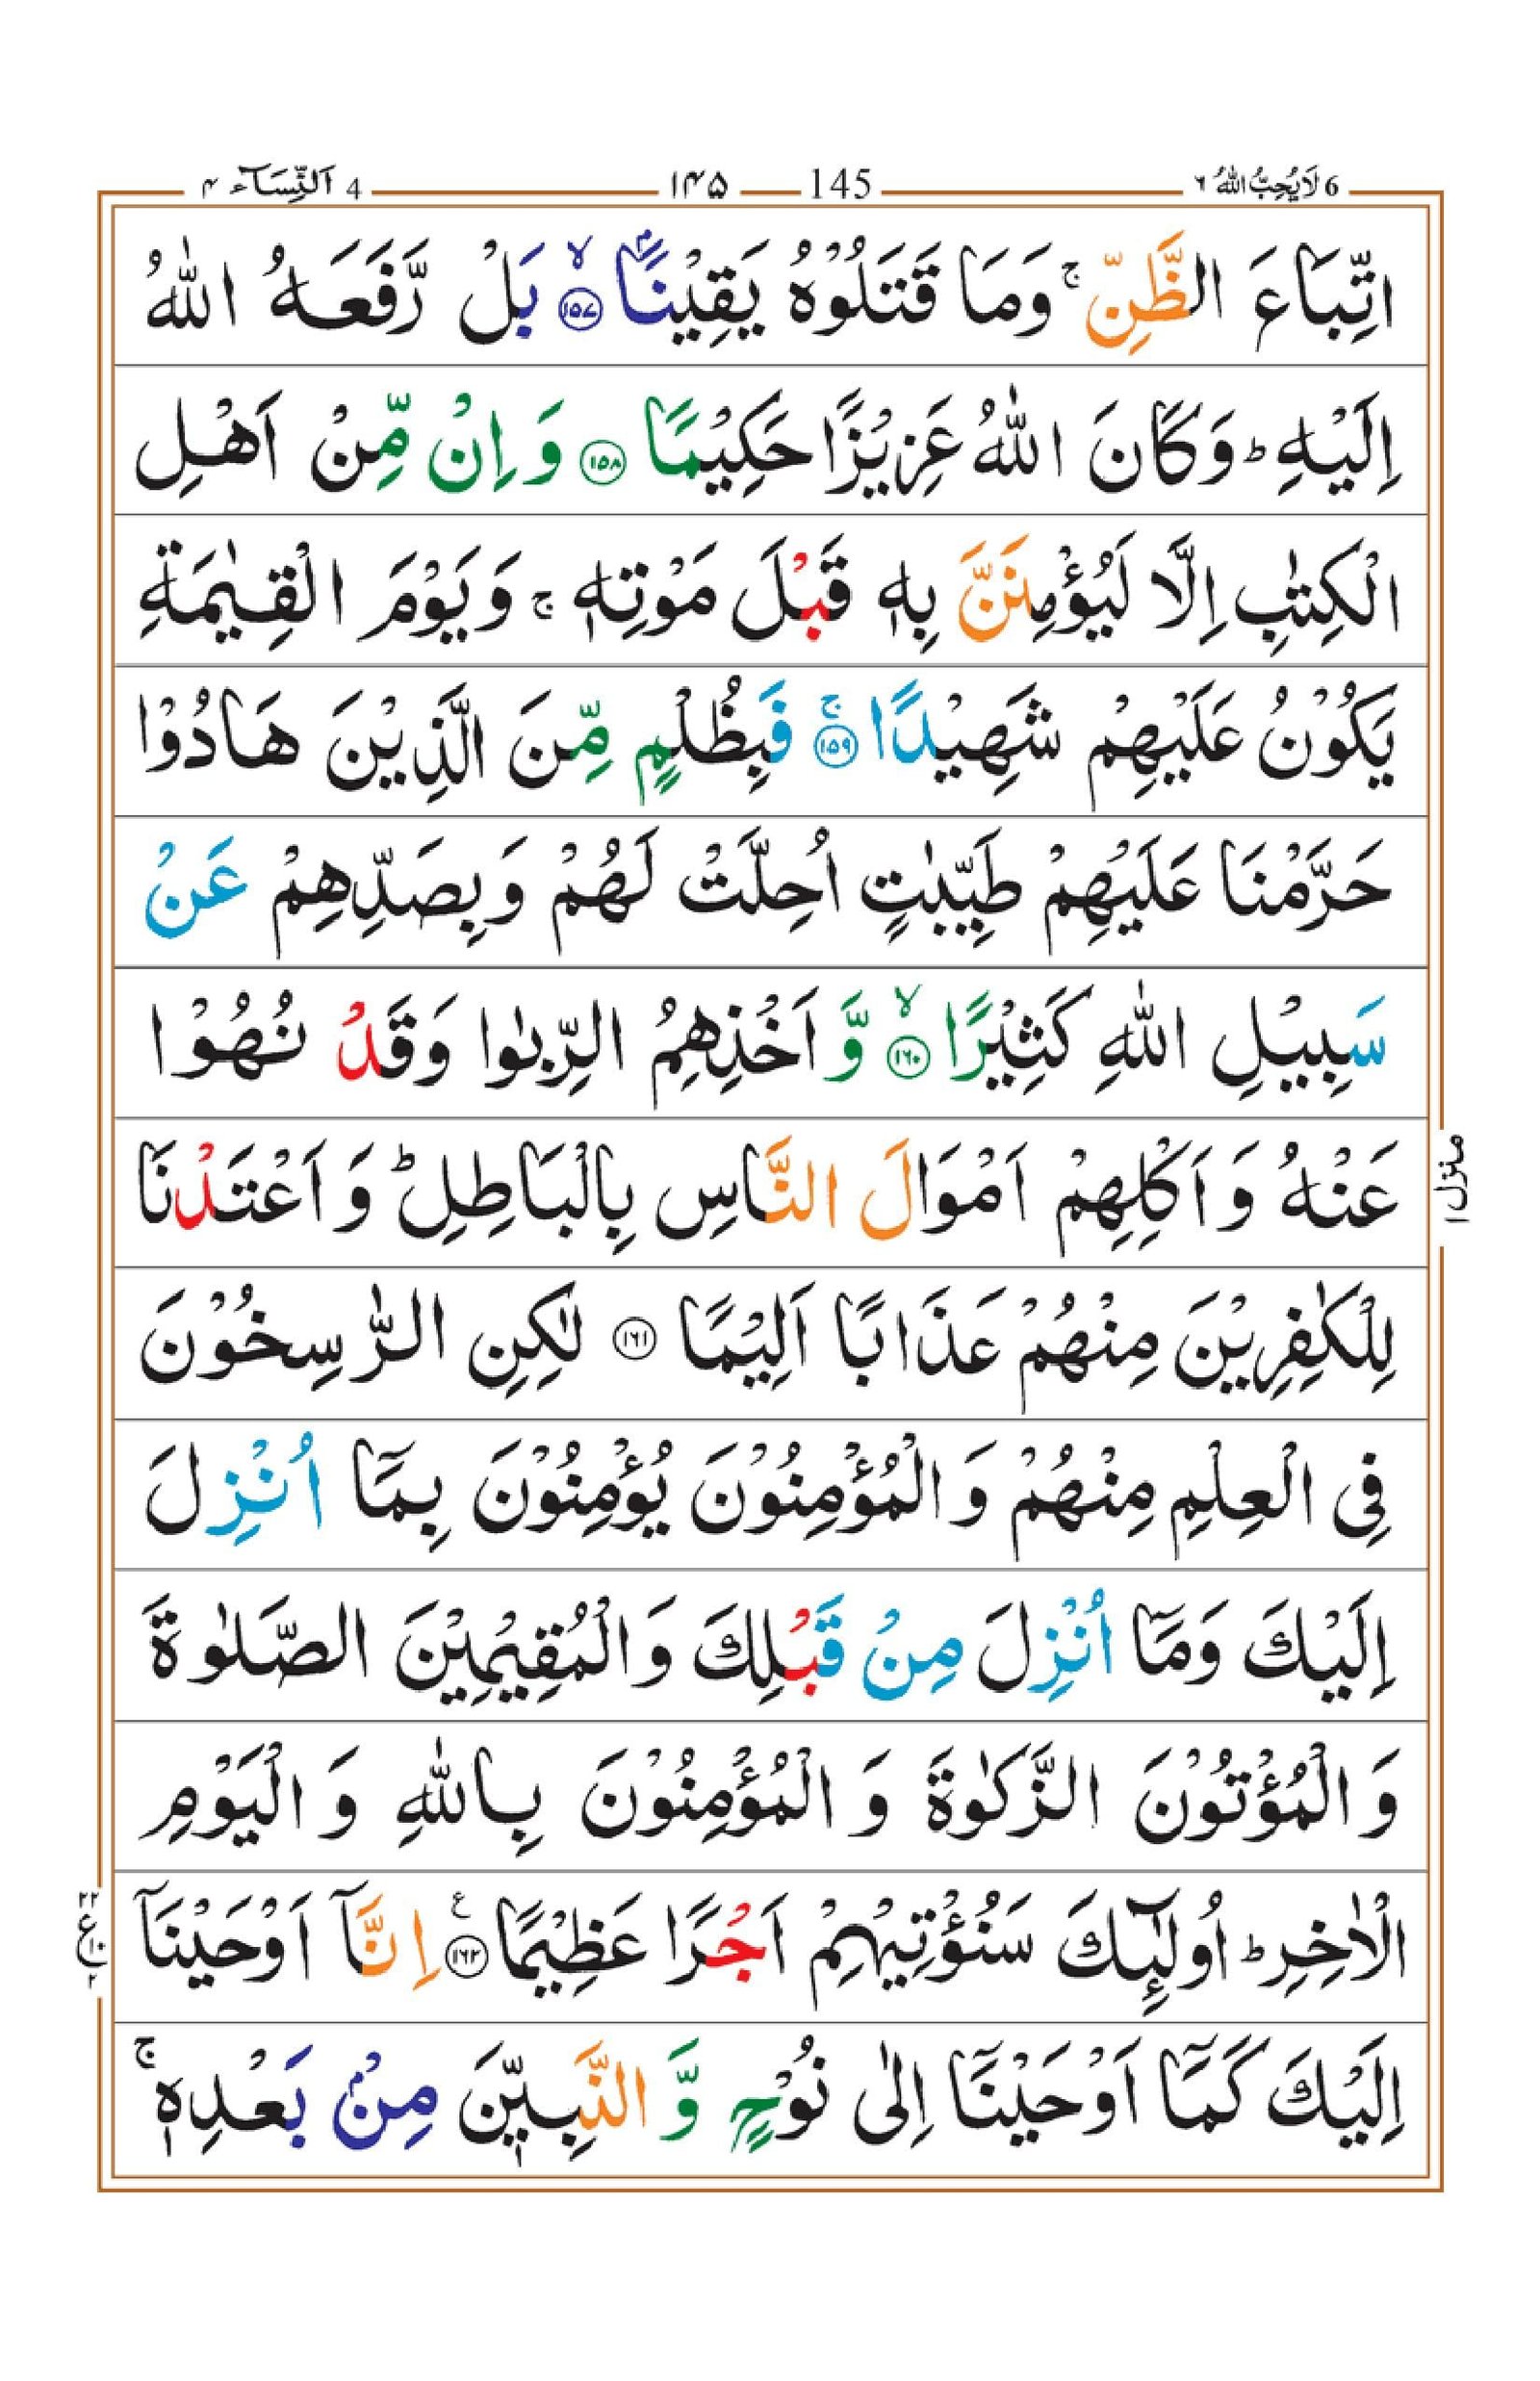 6 لَا يُحِبُّ اللهُ ٦ 145 ۱۴۵ 4 اَلنِّسَآء ۴
اتِّبَاعَ الظَّنِّ ۚ وَمَا قَتَلُوْهُ يَقِيْنًاۢ ۙ﴿۱۵۷﴾ بَلْ رَّفَعَهُ اللّٰهُ
اِلَيْهِ ؕ وَكَانَ اللّٰهُ عَزِيْزًا حَكِيْمًا ﴿۱۵۸﴾ وَ اِنْ مِّنْ اَهْلِ
الْكِتٰبِ اِلَّا لَيُؤْمِنَنَّ بِهٖ قَبْلَ مَوْتِهٖ ۚ وَيَوْمَ الْقِيٰمَةِ
يَكُوْنُ عَلَيْهِمْ شَهِيْدًا ۚ﴿۱۵۹﴾ فَبِظُلْمٍ مِّنَ الَّذِيْنَ هَادُوْا
حَرَّمْنَا عَلَيْهِمْ طَيِّبٰتٍ اُحِلَّتْ لَهُمْ وَبِصَدِّهِمْ عَنْ
سَبِيْلِ اللّٰهِ كَثِيْرًا ۙ﴿۱۶۰﴾ وَّ اَخْذِهِمُ الرِّبٰوا وَقَدْ نُهُوْا
عَنْهُ وَ اَكْلِهِمْ اَمْوَالَ النَّاسِ بِالْبَاطِلِ ؕ وَ اَعْتَدْنَا
لِلْكٰفِرِيْنَ مِنْهُمْ عَذَابًا اَلِيْمًا ﴿۱۶۱﴾ لٰكِنِ الرّٰسِخُوْنَ
فِى الْعِلْمِ مِنْهُمْ وَ الْمُؤْمِنُوْنَ يُؤْمِنُوْنَ بِمَاۤ اُنْزِلَ
اِلَيْكَ وَمَاۤ اُنْزِلَ مِنْ قَبْلِكَ وَالْمُقِيْمِيْنَ الصَّلٰوةَ
وَ الْمُؤْتُوْنَ الزَّكٰوةَ وَ الْمُؤْمِنُوْنَ بِاللّٰهِ وَ الْيَوْمِ
الْاٰخِرِ ؕ اُولٰٓئِكَ سَنُؤْتِيْهِمْ اَجْرًا عَظِيْمًا ﴿۱۶۲﴾ ع اِنَّاۤ اَوْحَيْنَاۤ
اِلَيْكَ كَمَاۤ اَوْحَيْنَاۤ اِلٰى نُوْحٍ وَّ النَّبِيّٖنَ مِنْۢ بَعْدِهٖ ۚ
منزل ۱
۲۲ ع ۱۰ ۲